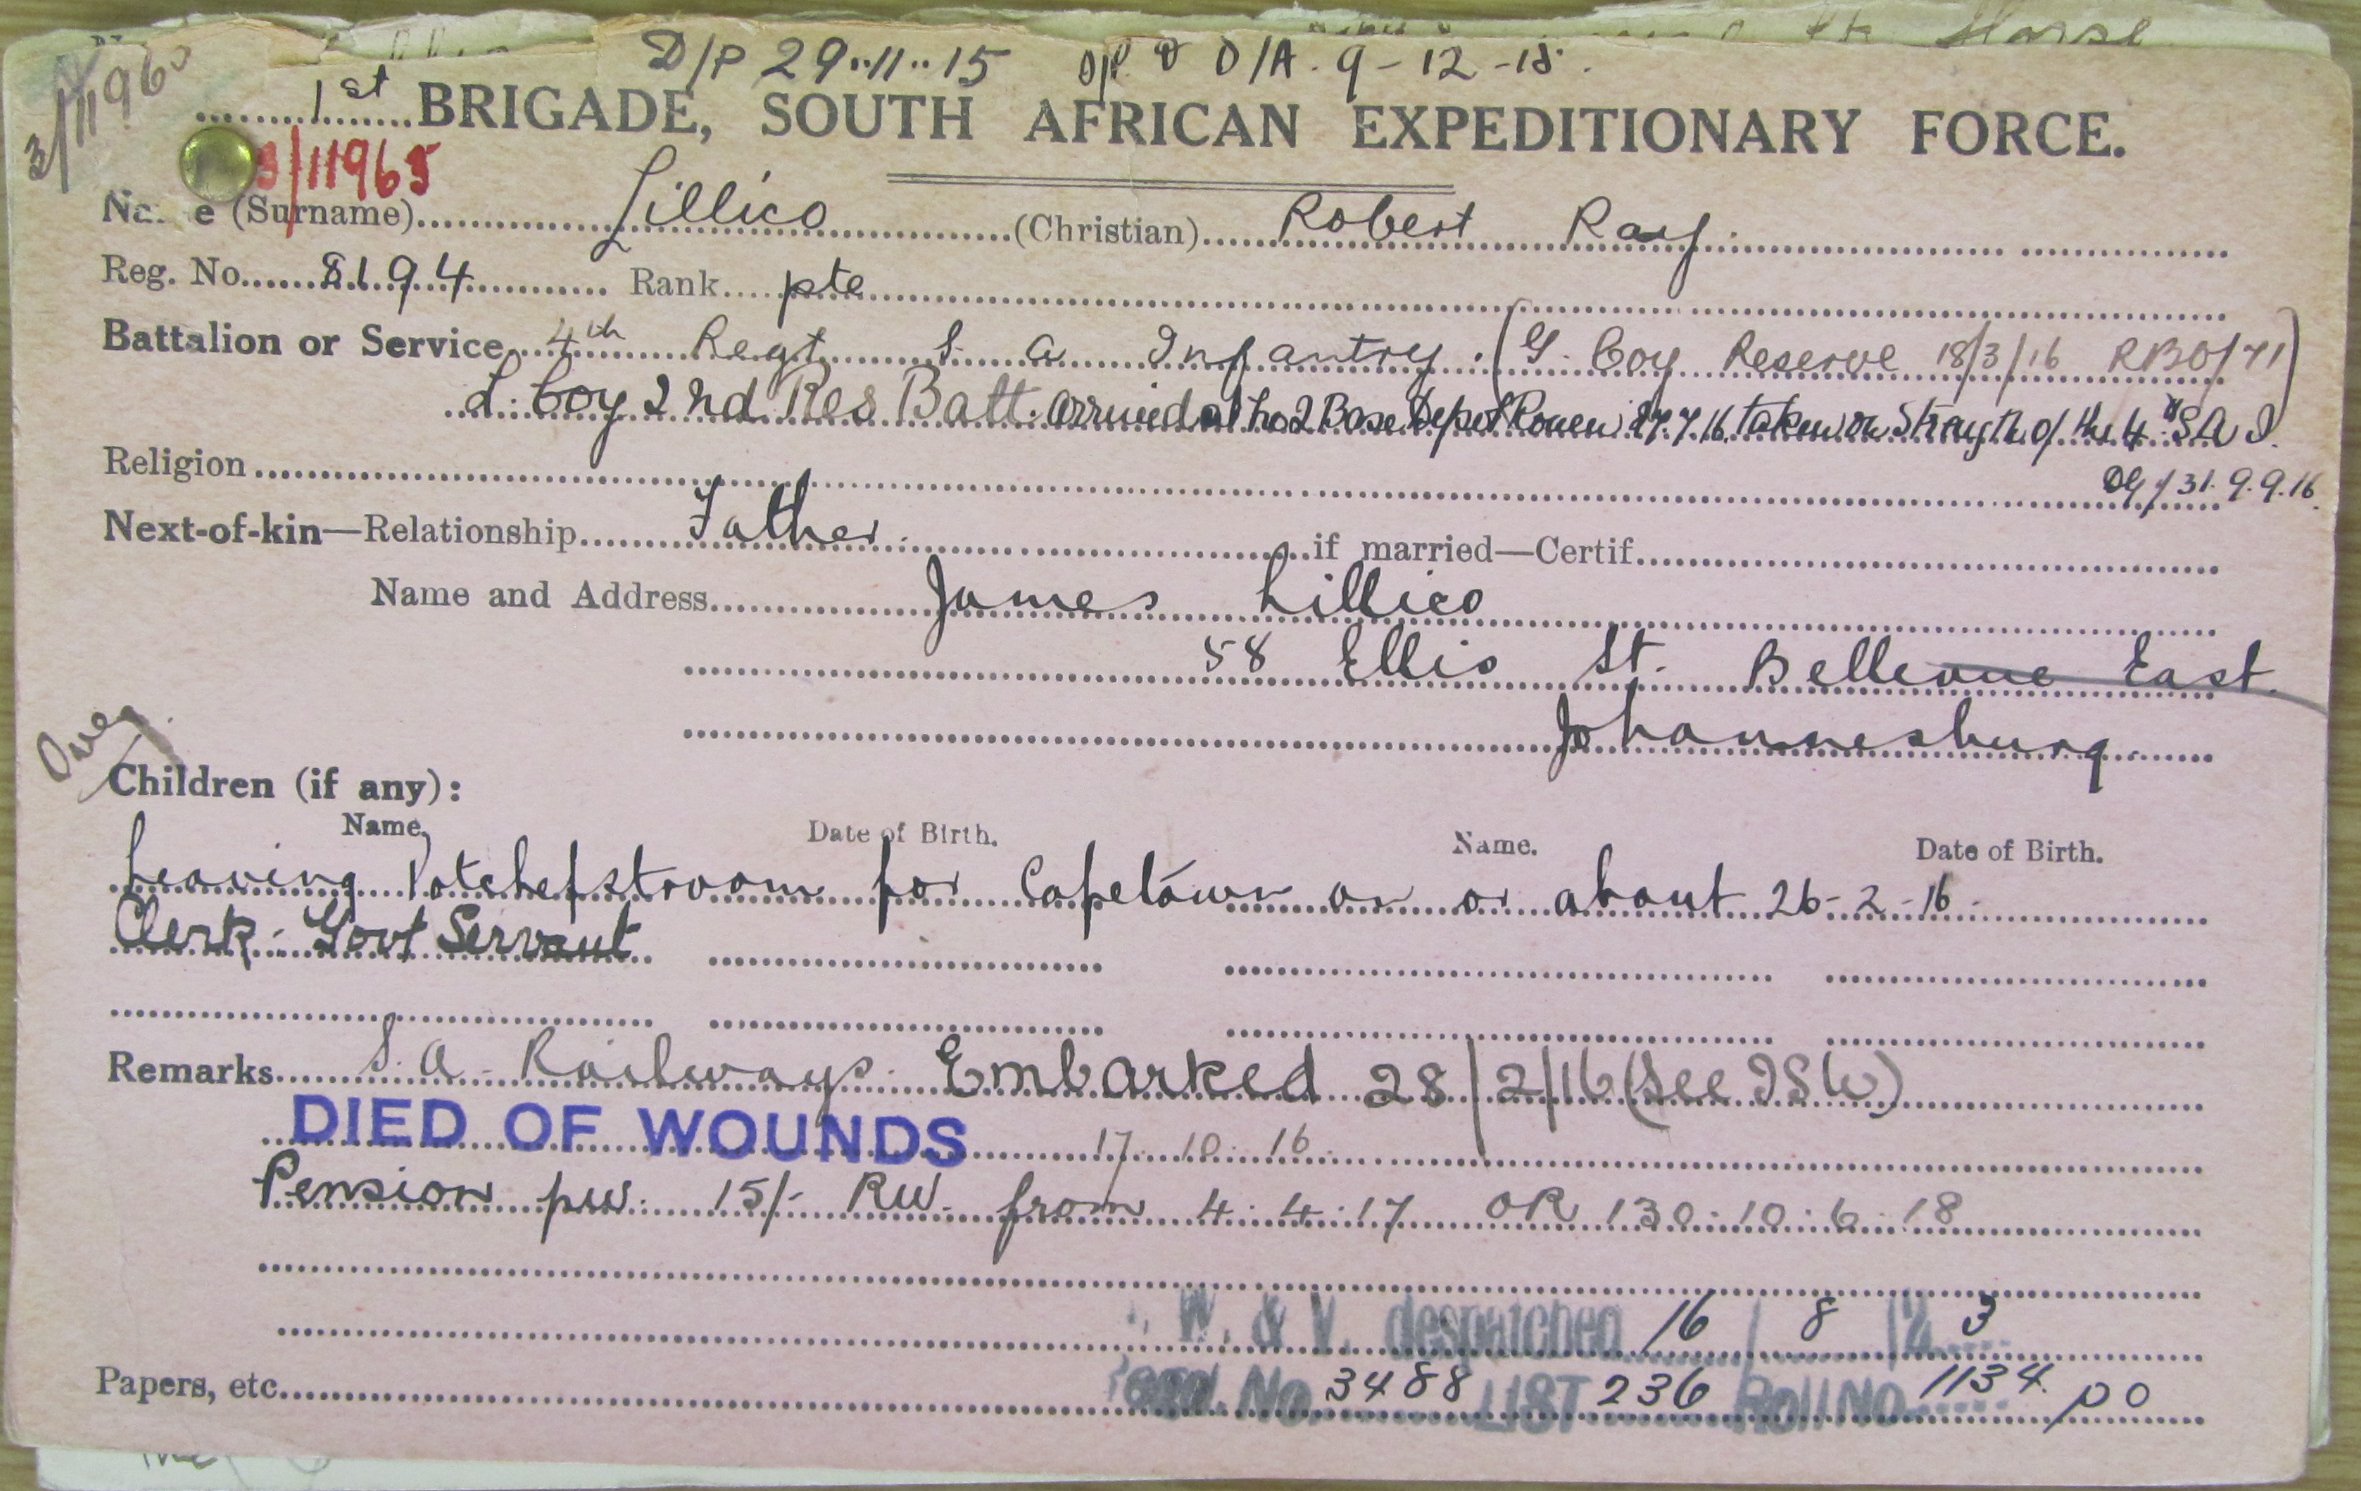 Horse
D/P 29..11..15 D/P. & D/A. 9-12-15.
3/11965
1st BRIGADE, SOUTH AFRICAN EXPEDITIONARY FORCE.
3/11965
Name (Surname) Lillico (Christian) Robert Ray.
Reg. No. 8194 Rank pte
Battalion or Service 4th Regt S. A. Infantry. (G. Coy Reserve 18/3/16 RBO/71)
L. Coy 2nd Res Batt. arrived at No 2 Base Depot Rouen 27.7.16 taken on Strength of the 4th S A I.
Religion
31. 9.9.16.
Next-of-kin—Relationship Father. if married—Certif.
Name and Address James Lillico
58 Ellis St. Bellevue East.
Johannesburg
Over
Children (if any):
Name. Date of Birth. Name. Date of Birth.
Leaving Potchefstroom for Capetown on or about 26-2-16.
Clerk. Govt Servant
Remarks S. A. Railways. Embarked 28/2/16 (See I S W)
DIED OF WOUNDS 17. 10. 16.
Pension pw. 15/- RW. from 4. 4. 17 OR 130. 10. 6. 18
W. & V. despatched 16 / 8 / 23
No. 3488 LIST 236 Roll No. 1134. po
Papers, etc.